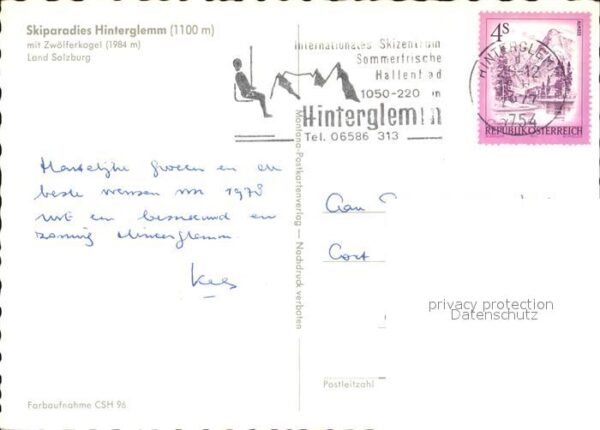 Skiparadies Hinterglemm (1100 m)
mit Zwölferkogel (1984 m)
Land Salzburg
Internationales Skizentrum
Sommerfrische
Hallenbad
1050-220 m
Hinterglemm
Tel. 06586 313
HINTERGLEMM
5754
4S
REPUBLIK ÖSTERREICH
Hartelijke groeten en de
beste wensen voor 1978
uit een besneeuwd en
zonnig Hinterglemm
Kees
Aan
Cort
Montana-Postkartenverlag — Nachdruck verboten
privacy protection
Datenschutz
Postleitzahl
Farbaufnahme CSH 96